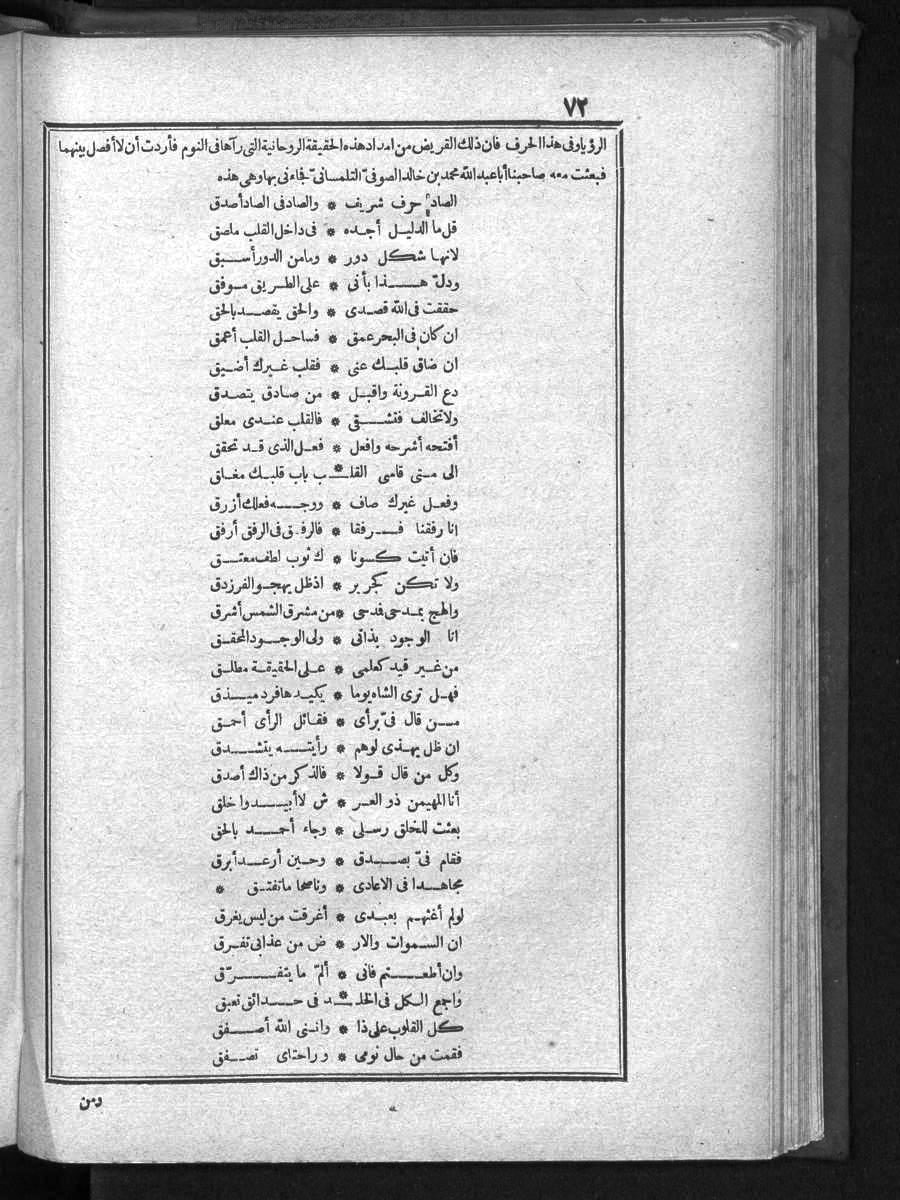 ٧٢
الرؤيا وفى هذا الحرف فان ذلك القريض من امداد هذه الحقيقة الروحانية التى رآها فى النوم فأردت أن لا أفصل بينهما
فبعثت معه صاحبنا أبا عبد الله محمد بن خالد الصوفىّ التلمسانىّ فجاءنى بها وهى هذه
الصاد حرف شريف * والصاد فى الصاد أصدق
قل ما الدليل أجده * فى داخل القلب ملصق
لانها شكل دور * وما من الدور أسبق
ودلّ هذا بأنى * على الطريق موفق
حققت فى الله قصدى * والحق يقصد بالحق
ان كان فى البحر عمق * فساحل القلب أعمق
ان ضاق قلبك عنى * فقلب غيرك أضيق
دع القرونة واقبل * من صادق يتصدق
ولا تخالف فتشقى * فالقلب عندى معلق
أفتحه أشرحه وافعل * فعل الذى قد تحقق
الى متى قامى القلـ * ـب باب قلبك مغلق
وفعل غيرك صاف * ووجه فعلك أزرق
انا رفقنا فرفقا * فالرفق فى الرفق أرفق
فان أتيت كونا * ك ثوب لطف معتق
ولا تكن كجرير * اذ ظل يهجو الفرزدق
والهج بمدحى فدحى * من مشرق الشمس أشرق
انا الوجود بذاتى * ولى الوجود المحقق
من غير قيد كعلمى * على الحقيقة مطلق
فهل ترى الشاه يوما * يكيدها فرد ميذق
من قال فىّ برأى * فقائل الرأى أحمق
ان ظل يهذى لوهم * رأيته يتشدق
وكل من قال قولا * فالذكر من ذاك أصدق
أنا المهيمن ذو العر * ش لا أبيد واخلق
بعثت للخلق رسلى * وجاء أحمد بالحق
فقام فىّ بصدق * وحين أرعد أبرق
مجاهدا فى الاعادى * وناصحا ما تفتق *
لو لم أغثهم بعبدى * أغرقت من ليس يغرق
ان السموات والار * ض من عذابى تفرق
وان أطعتم فانى * ألمّ ما يتفرّق
واجمع الكل فى الخلـ * ـد فى حدائق تعبق
كل القلوب على ذا * واننى الله أصفق
فقمت من حال نومى * وراحتاى تصفق
ومن